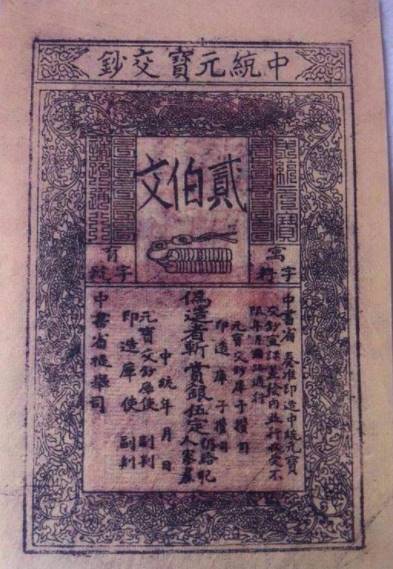 中統元寶交鈔
貳伯文
中書省奏准印造中統元寶
交鈔宣課差發內並行收受不
限年月諸路通行
元寶交鈔庫子攢司
印造庫子攢司
偽造者斬賞銀伍定仍給犯人家產
中統年月日
元寶交鈔庫使副判
印造庫使副判
中書省提舉司